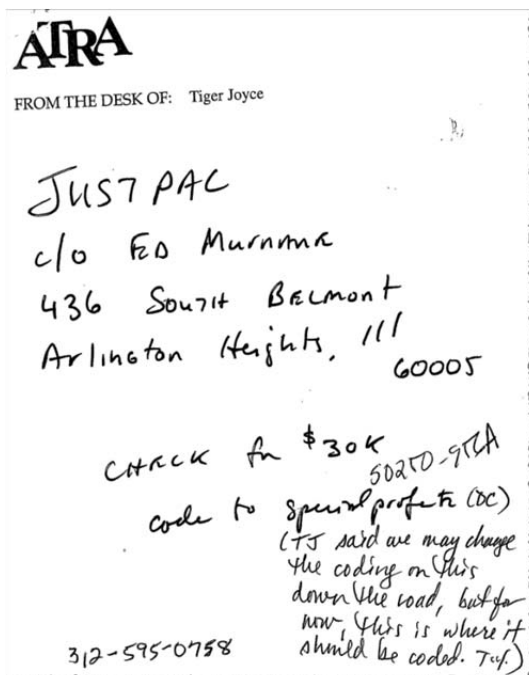 ATRA
FROM THE DESK OF: Tiger Joyce
JUST PAC
c/o ED Murnane
436 South Belmont
Arlington Heights, Ill
60005
CHECK for $30K
code to special projects (DC)
(TJ said we may change
the coding on this
down the road, but for
now, this is where it
should be coded.
312-595-0758